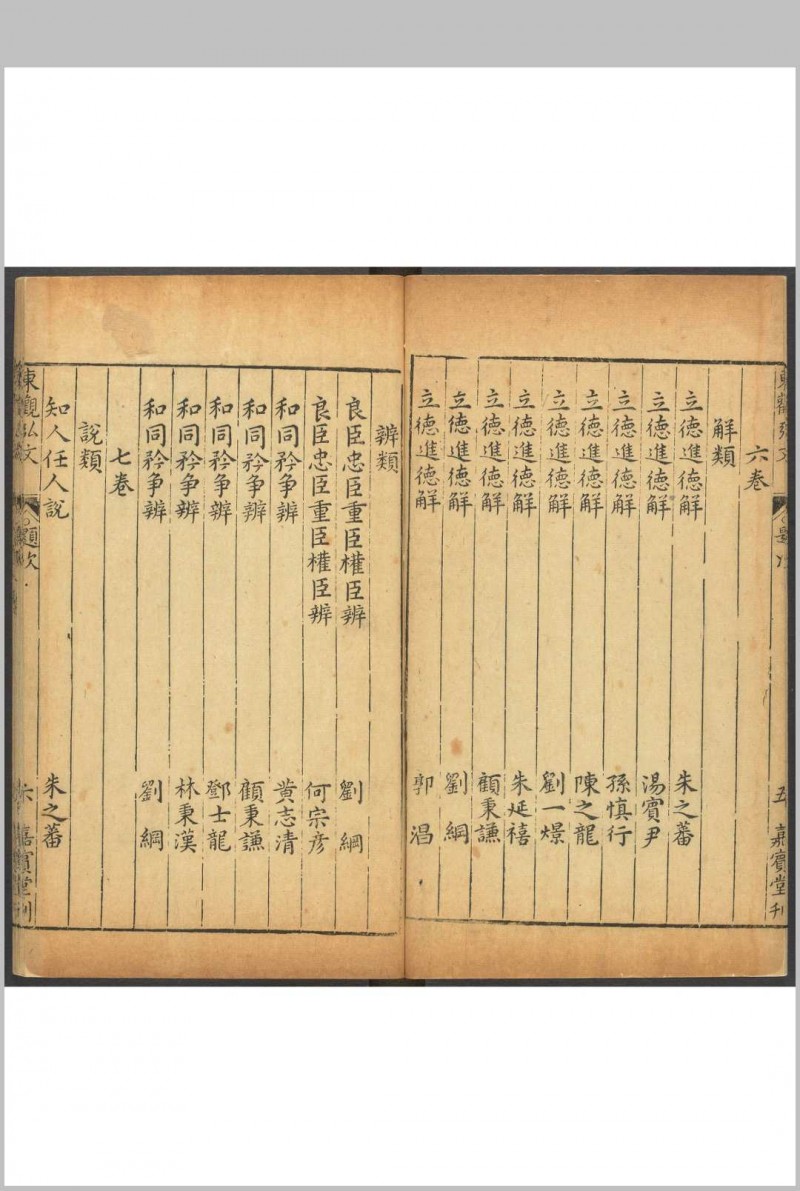 六卷
解類
立德進德解 朱之蕃
立德進德解 湯賓尹
立德進德解 孫慎行
立德進德解 陳之龍
立德進德解 劉一燝
立德進德解 朱延禧
立德進德解 顧秉謙
立德進德解 劉綱
立德進德解 郭淐
五 嘉賓堂刊
辨類
良臣忠臣重臣權臣辨 劉綱
良臣忠臣重臣權臣辨 何宗彥
和同矜争辨 黃志清
和同矜争辨 顧秉謙
和同矜争辨 鄧士龍
和同矜争辨 林秉漢
和同矜争辨 劉綱
七卷
說類
知人任人說 朱之蕃
東觀弘文 題次 六 嘉賓堂刊